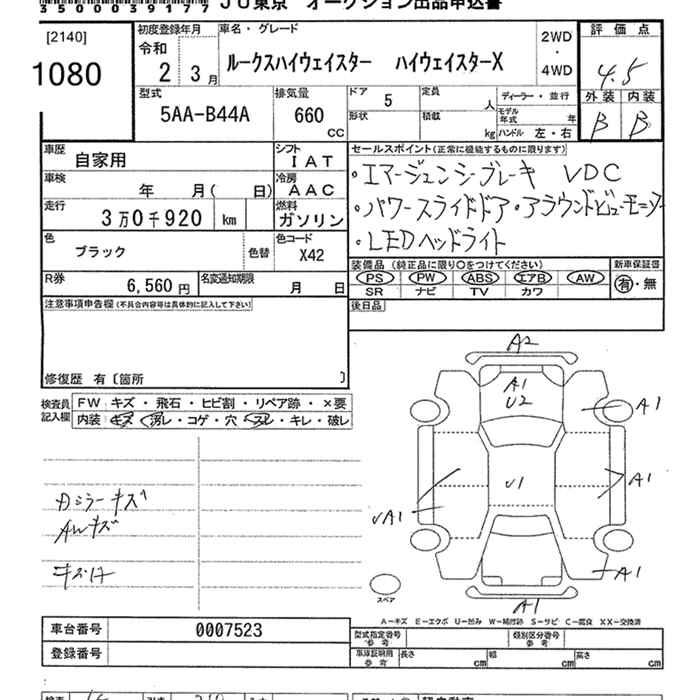 35000039177 JU東京 オークション出品申込書
[2140]
1080
初度登録年月
令和
2 3月
車名・グレード
ルークスハイウェイスター ハイウェイスターX
2WD
・
4WD
評価点
4.5
外装 内装
B B
型式
5AA-B44A
排気量
660
CC
ドア 5
定員 人
形状
積載 kg
ディーラー・並行
モデル年式 年
ハンドル 左・右
車歴
自家用
シフト
IAT
車検
年 月( 日)
冷房
AAC
走行
3万0千920 km
燃料
ガソリン
色
ブラック
色替
色コード
X42
R券
6,560円
名変通知期限
月 日
セールスポイント(正常に機能するものに限ります)
・エマージェンシーブレーキ VDC
・パワースライドドア・アラウンドビューモニター
・LEDヘッドライト
装備品(純正品に限り○をつけてください)
新車保証書
PS PW ABS エアB AW
SR ナビ TV カワ
有・無
注意事項申告欄(不具合内容等は具体的に記入して下さい)
後日品
修復歴 有〔箇所 〕
検査員記入欄
FW キズ・飛石・ヒビ割・リペア跡・×要
内装 キズ・汚レ・コゲ・穴・スレ・キレ・破レ
カミラーキズ
AWキズ
A2
A1
U2
A1
U1
A1
UA1
A1
A1
スペア
A-キズ E-エクボ U-凹み W-補修跡 S-サビ C-腐食 XX-交換済
車台番号 0007523
登録番号
型式指定番号 参考
類別区分番号 参考
車庫証明用 参考
長さ cm 幅 cm 高さ cm